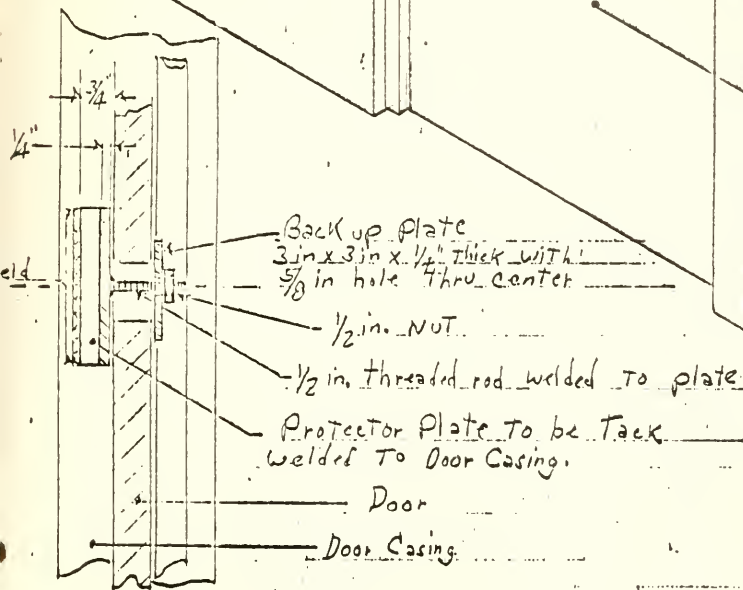 3/4"
1/4"
Back up Plate
3 in x 3 in x 1/4" Thick with
5/8 in hole Thru center
eld
1/2 in. NUT
1/2 in. threaded rod welded To plate
Protector Plate To be Tack
welded To Door Casing.
Door
Door Casing